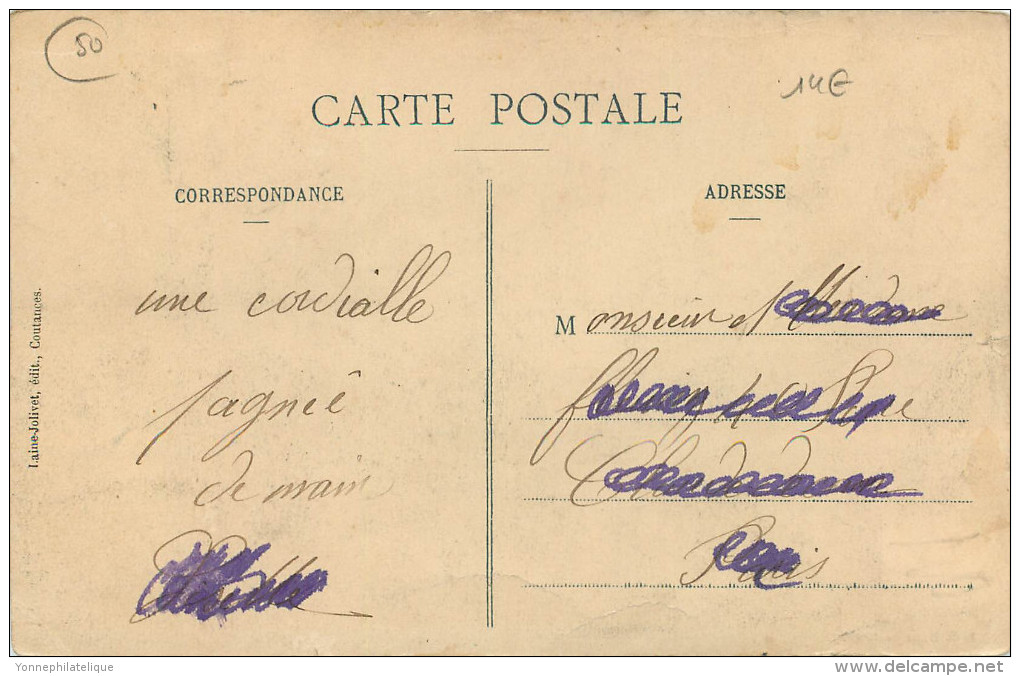 50
14€
CARTE POSTALE
CORRESPONDANCE
ADRESSE
une cordialle
pagnée
de main
Monsieur et
Paris
Laine-Jolivet, édit., Coutances.
Yonnephilatelique
www.delcampe.net